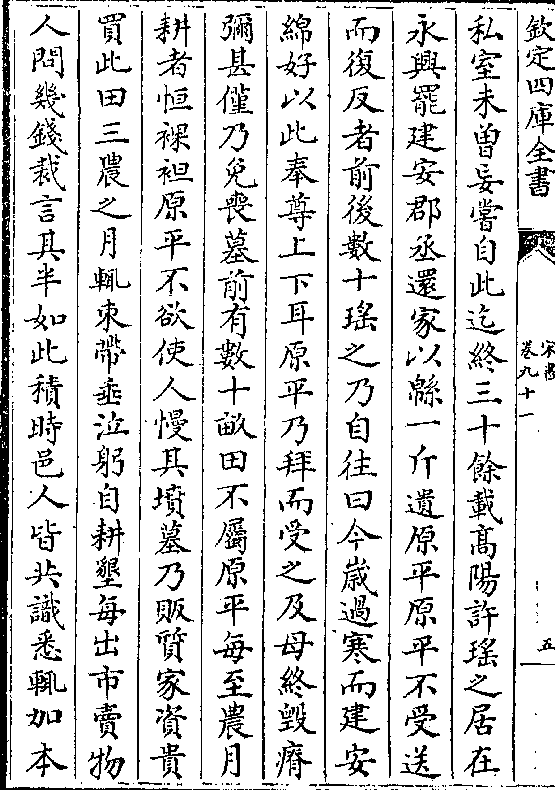 欽定四庫全書
宋書
卷九十一
五
私室未曽妄嘗自此迄終三十餘載髙陽許瑤之居在
永興罷建安郡丞還家以緜一斤遺原平原平不受送
而復反者前後數十瑤之乃自往曰今嵗過寒而建安
綿好以此奉尊上下耳原平乃拜而受之及母終毀瘠
彌甚僅乃免喪墓前有數十畝田不屬原平每至農月
耕者恒裸袒原平不欲使人慢其墳墓乃販質家資貴
買此田三農之月輒束帶垂泣躬自耕墾每出市賣物
人問幾錢裁言其半如此積時邑人皆共識悉輒加本